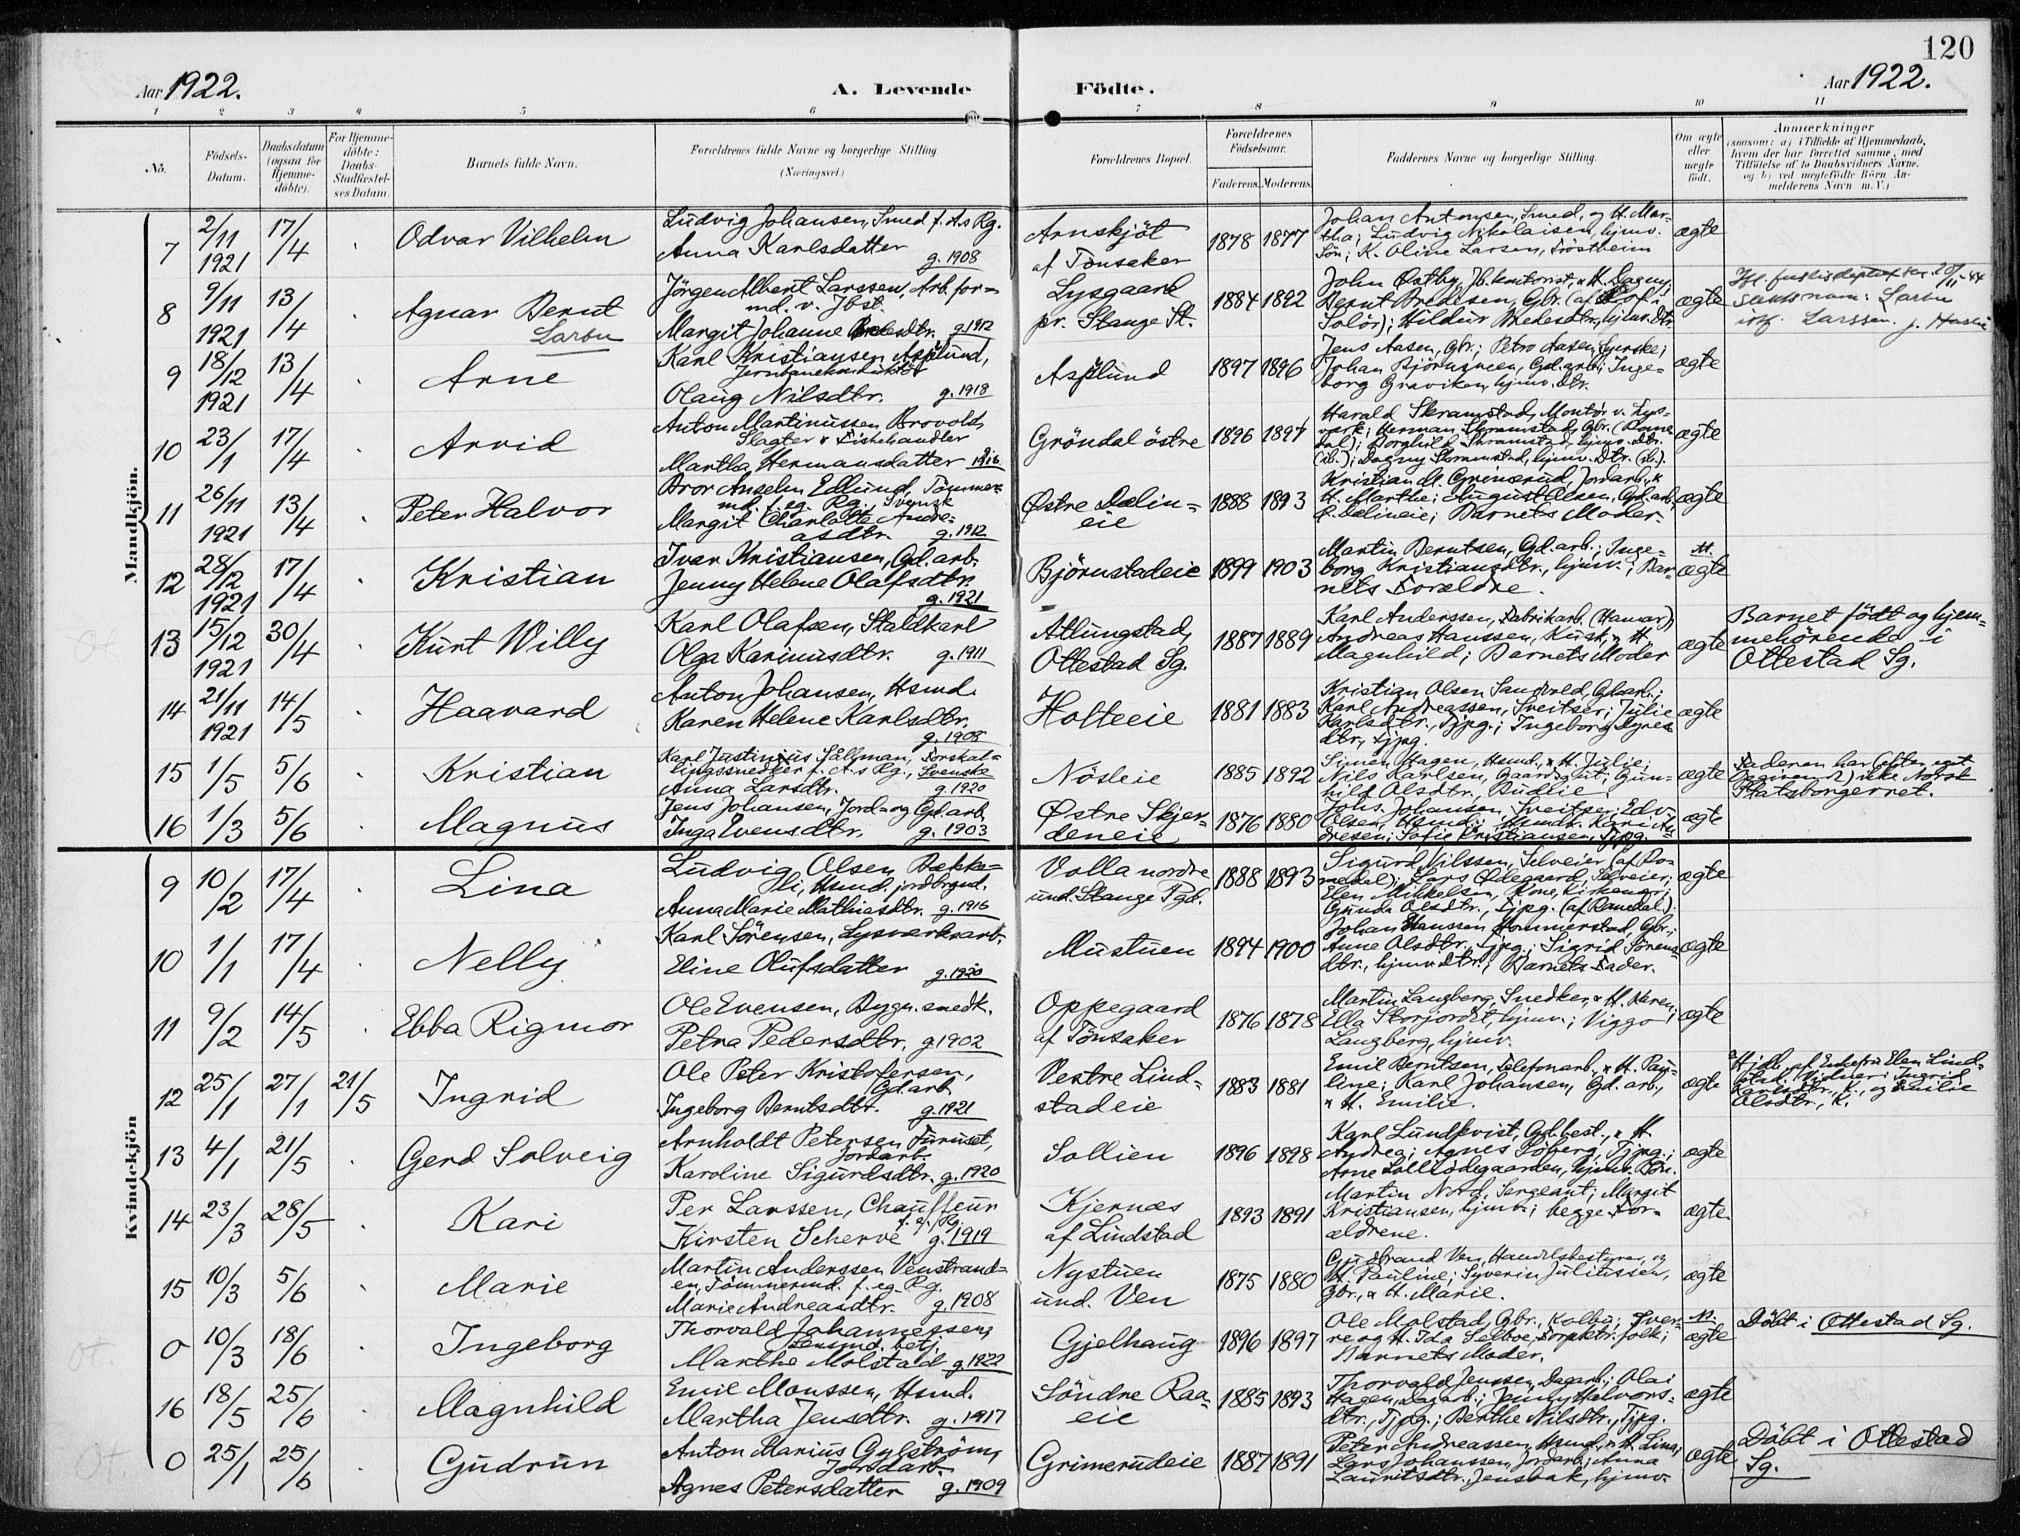 120
Aar 1922. A. Levende Födte. Aar 1922.
1 2 3 4 5 6 7 8 9 10 11
No. Födsels-Datum. Daabsdatum (ogsaa for Hjemme-döbte). For Hjemme-döbte: Daabs-Stadfæstel-ses Datum. Barnets fulde Navn. Forældrenes fulde Navne og borgerlige Stilling (Næringsvei.) Forældrenes Bopæl. Forældrenes Födselsaar. Faderens. Moderens. Faddernes Navne og borgerlige Stilling. Om ægte eller uægte födt. Anmærkninger (saasom: a) i Tilfælde af Hjemmedaab, hvem der har forrettet samme, med Tilföielse af to Daabsvidners Navne, og b) ved uægtefödte Börn An-melderens Navn m. V.)
Mandkjön.
7 2/11 1921 17/4 Odvar Vilhelm
Ludvig Johansen, Smed f. A.s Rg.
Anna Karlsdatter g. 1908
Arnskjöt
af Tönsaker
1878 1877
Johan Antonsen, Smed, og H. Mar-
tha; Ludvig Nikolaisen, hjmv.
Sön; K. Oline Larsen, Fröstheim
ægte
8 9/11 1921 13/4 Agnar Bernt
Larsen
Jörgen Albert Larssen, Arb. for-
md. v. Jbst.
Margit Johanne Bredesdtr. g. 1912
Lysgaard
pr. Stange St.
1884 1892
John Østby, Jb. kontorist, & H. Dagny;
Bernt Bredesen, Gbr. (af Hof i
Solör); Hildur Bredesdtr., hjmv. Dtr.
ægte
9 18/12 1921 13/4 Arne
Karl Kristiansen Asplund,
Jernbanekonduktör
Olaug Nilsdtr. g. 1918
Asplund
1897 1896
Jens Aasen, Gbr.; Petro Aasen, Syerske;
Johan Björnsveen, Gd.arb.; Inge-
borg Graviken, hjmv. Dtr.
ægte
10 23/1 17/4 Arvid
Anton Martinussen Brovold,
Slagter & Fiskehandler
Martha Hermansdatter 1916
Gröndal östre
1896 1897
Harald Skramstad, Montör v. Lys-
værk; Herman Skramstad, Gbr. (Rome-
dal); Borghild Skramstad, hjmv. Dtr.
(ib.); Dagny Skramstad, hjmv. Dtr. (ib.).
ægte
11 26/11 1921 13/4 Peter Halvor
Bror Anselm Edlund, Tömmer-
md. f. eg. Rg., Svensk
Margit Charlotte Andre-
asdtr. g. 1912
Østre Dælin-
eie
1888 1893
Kristian M. Grimerud, Jordarb., &
H. Marthe; August Olsen, Gd.arb.,
Ö. Dælineie; Barnets Moder.
ægte
12 28/12 1921 17/4 Kristian
Ivar Kristiansen, Gd. arb.
Jenny Helene Olafsdtr.
g. 1921
Björnstadeie
1899 1903
Martin Berntsen, Gd. arb.; Inge-
borg Kristiansdtr., hjmv.; Bar-
nets Forældre.
ægte
13 15/12 1921 30/4 Kurt Willy
Karl Olafsen, Staldkarl
Olga Karinusdtr. g. 1911
Atlungstad,
Ottestad Sg.
1887 1889
Karl Anderssen, Fabrikarb. (Hamar)
Andreas Hanssen, Kusk, & H.
Magnhild; Barnets Moder
ægte
Barnet födt og hjem-
mehörende i
Ottestad Sg.
14 21/11 1921 14/5 Haavard
Anton Johansen, Hsmd.
Karen Helene Karlsdtr.
g. 1908
Holteeie
1881 1883
Kristian Olsen Sandvold, Gd.arb.;
Karl Andreassen, Sveitser; Julie
Karlsdtr., Tjpg.; Ingeborg
dtr., Tjpg.
ægte
15 1/5 5/6 Kristian
Karl Justinius Sällman, Forskal-
lingssnedker f. A.s Rg., Svenske
Anna Larsdtr. g. 1920
Nösleie
1885 1892
Simen Hagen, Hsmd., & H. Julie;
Nils Karlsen, Gaardsgut; Gun-
hild Olsdtr., Budlie.
ægte
Faderen har (efter eget
Opgivende) ikke Norsk
Statsborgerret.
16 1/3 5/6 Magnus
Jens Johansen, Jord- og Gd.arb.
Inga Evensdtr. g. 1903
Østre Skjer-
deneie
1876 1880
Johs. Johansen, Sveitser; Edv.
Olsen, Hsmd.; Kari An-
dresen; Sofie Kristiansen, Tjpg.
ægte
Kvindekjön
9 10/2 17/4 Lina
Ludvig Olsen Bekke-
li, Hsmd., jordbrgnd.
Anna Marie Mathiasdtr. g. 1916
Volla nordre
und. Stange Pgd.
1888 1893
Sigurd Nilssen, Selveier (af Ro-
medal); Lars Ødegaard, Selveier;
Elen Mikkelsen, Kone, Kirkengr;
Gunda Olsdtr., Tjpg. (af Romedal).
ægte
10 1/1 17/4 Nelly
Karl Sörensen, Lysverksarb.
Eline Olufsdatter g. 1920
Mustuen
1894 1900
Johan Hanssen Hommerstad, Gbr.;
Anne Olsdtr., Tjpg.; Sigrid Sörens-
dtr., hjmv. dtr.; Barnets Fader.
ægte
11 9/2 14/5 Ebba Rigmor
Ole Evensen, Bygn. snedk.
Petra Pedersdtr. g. 1902
Oppegaard
af Tönsaker
1876 1878
Martin Langberg, Snedker, & H. Karen;
Ella Storjordet, hjmv.; Viggo
Langberg, hjmv.
ægte
12 25/1 27/1 21/5 Ingrid
Ole Peter Kristofersen,
Gd.arb.
Ingeborg Berntsdtr. g. 1921
Vestre Lind-
stadeie
1883 1881
Emil Berntsen, Telefonarb., & H. Pau-
line; Karl Johansen, Gd. arb.,
& H. Emilie.
ægte
Hjdbt. af Enkefru Elen Lind-
stad. Vidner: Ingrid
Karlsdtr., K., og Emilie
Olsdtr., K.
13 4/1 21/5 Gerd Solveig
Arnholdt Petersen Furuset,
Jordarb.
Karoline Sigurdsdtr. g. 1920
Sollien
1896 1898
Karl Lundkvist, Gd.best., & H.
Andrea; Agnes Söberg, Tjpg.;
Arne Solliödegaarden, hjmv. Sön.
ægte
14 23/3 28/5 Kari
Per Larssen, Chauffeur
f. ej. Rg.
Kirsten Scherve g. 1919
Kjernæs
af Lindstad
1893 1891
Martin Nord, Sergeant; Margit
Kristiansen, hjmv.; begge For-
ældrene.
ægte
15 10/3 5/6 Marie
Martin Anderssen Venstrand-
en, Tömmermd. f. eg. Rg.
Marie Andreasdtr. g. 1908
Nystuen
und. Ven
1875 1880
Gudbrand Ven, Handelsbestyrer, og
H. Pauline; Syverin Juliussen,
Gbr., & H. Marie.
ægte
0 10/3 18/6 Ingeborg
Thorvald Johannessen,
Lensmd. betj.
Marthe Molstad g. 1922
Gjelhaug
1896 1897
Ole Molstad, Gbr., Kolbu; Iver-
re og H. Ida Selboe, Forpktr. folk;
Barnets Moder.
ægte
Döbt i Ottestad Sg.
16 18/5 25/6 Magnhild
Emil Monssen, Hsmd.
Martha Jensdtr. g. 1917
Söndre Raa-
eie
1885 1893
Thorvald Jenssen, Dagarb.; Olai
Hagen, Dagarb.; Jenny Halvors-
dtr., Tjpg.; Berthe Nilsdtr., Tjpg.
ægte
0 25/1 25/6 Gudrun
Anton Marius Gylström,
Jordarb.
Agnes Petersdatter g. 1909
Grimerudeie
1887 1891
Peter Andreassen, Hsmd., & H. Lina;
Lars Johanssen, Jordarb.; Anna
Lauritsdtr., Jensbak, hjmv.
ægte
Döbt i Ottestad
Sg.